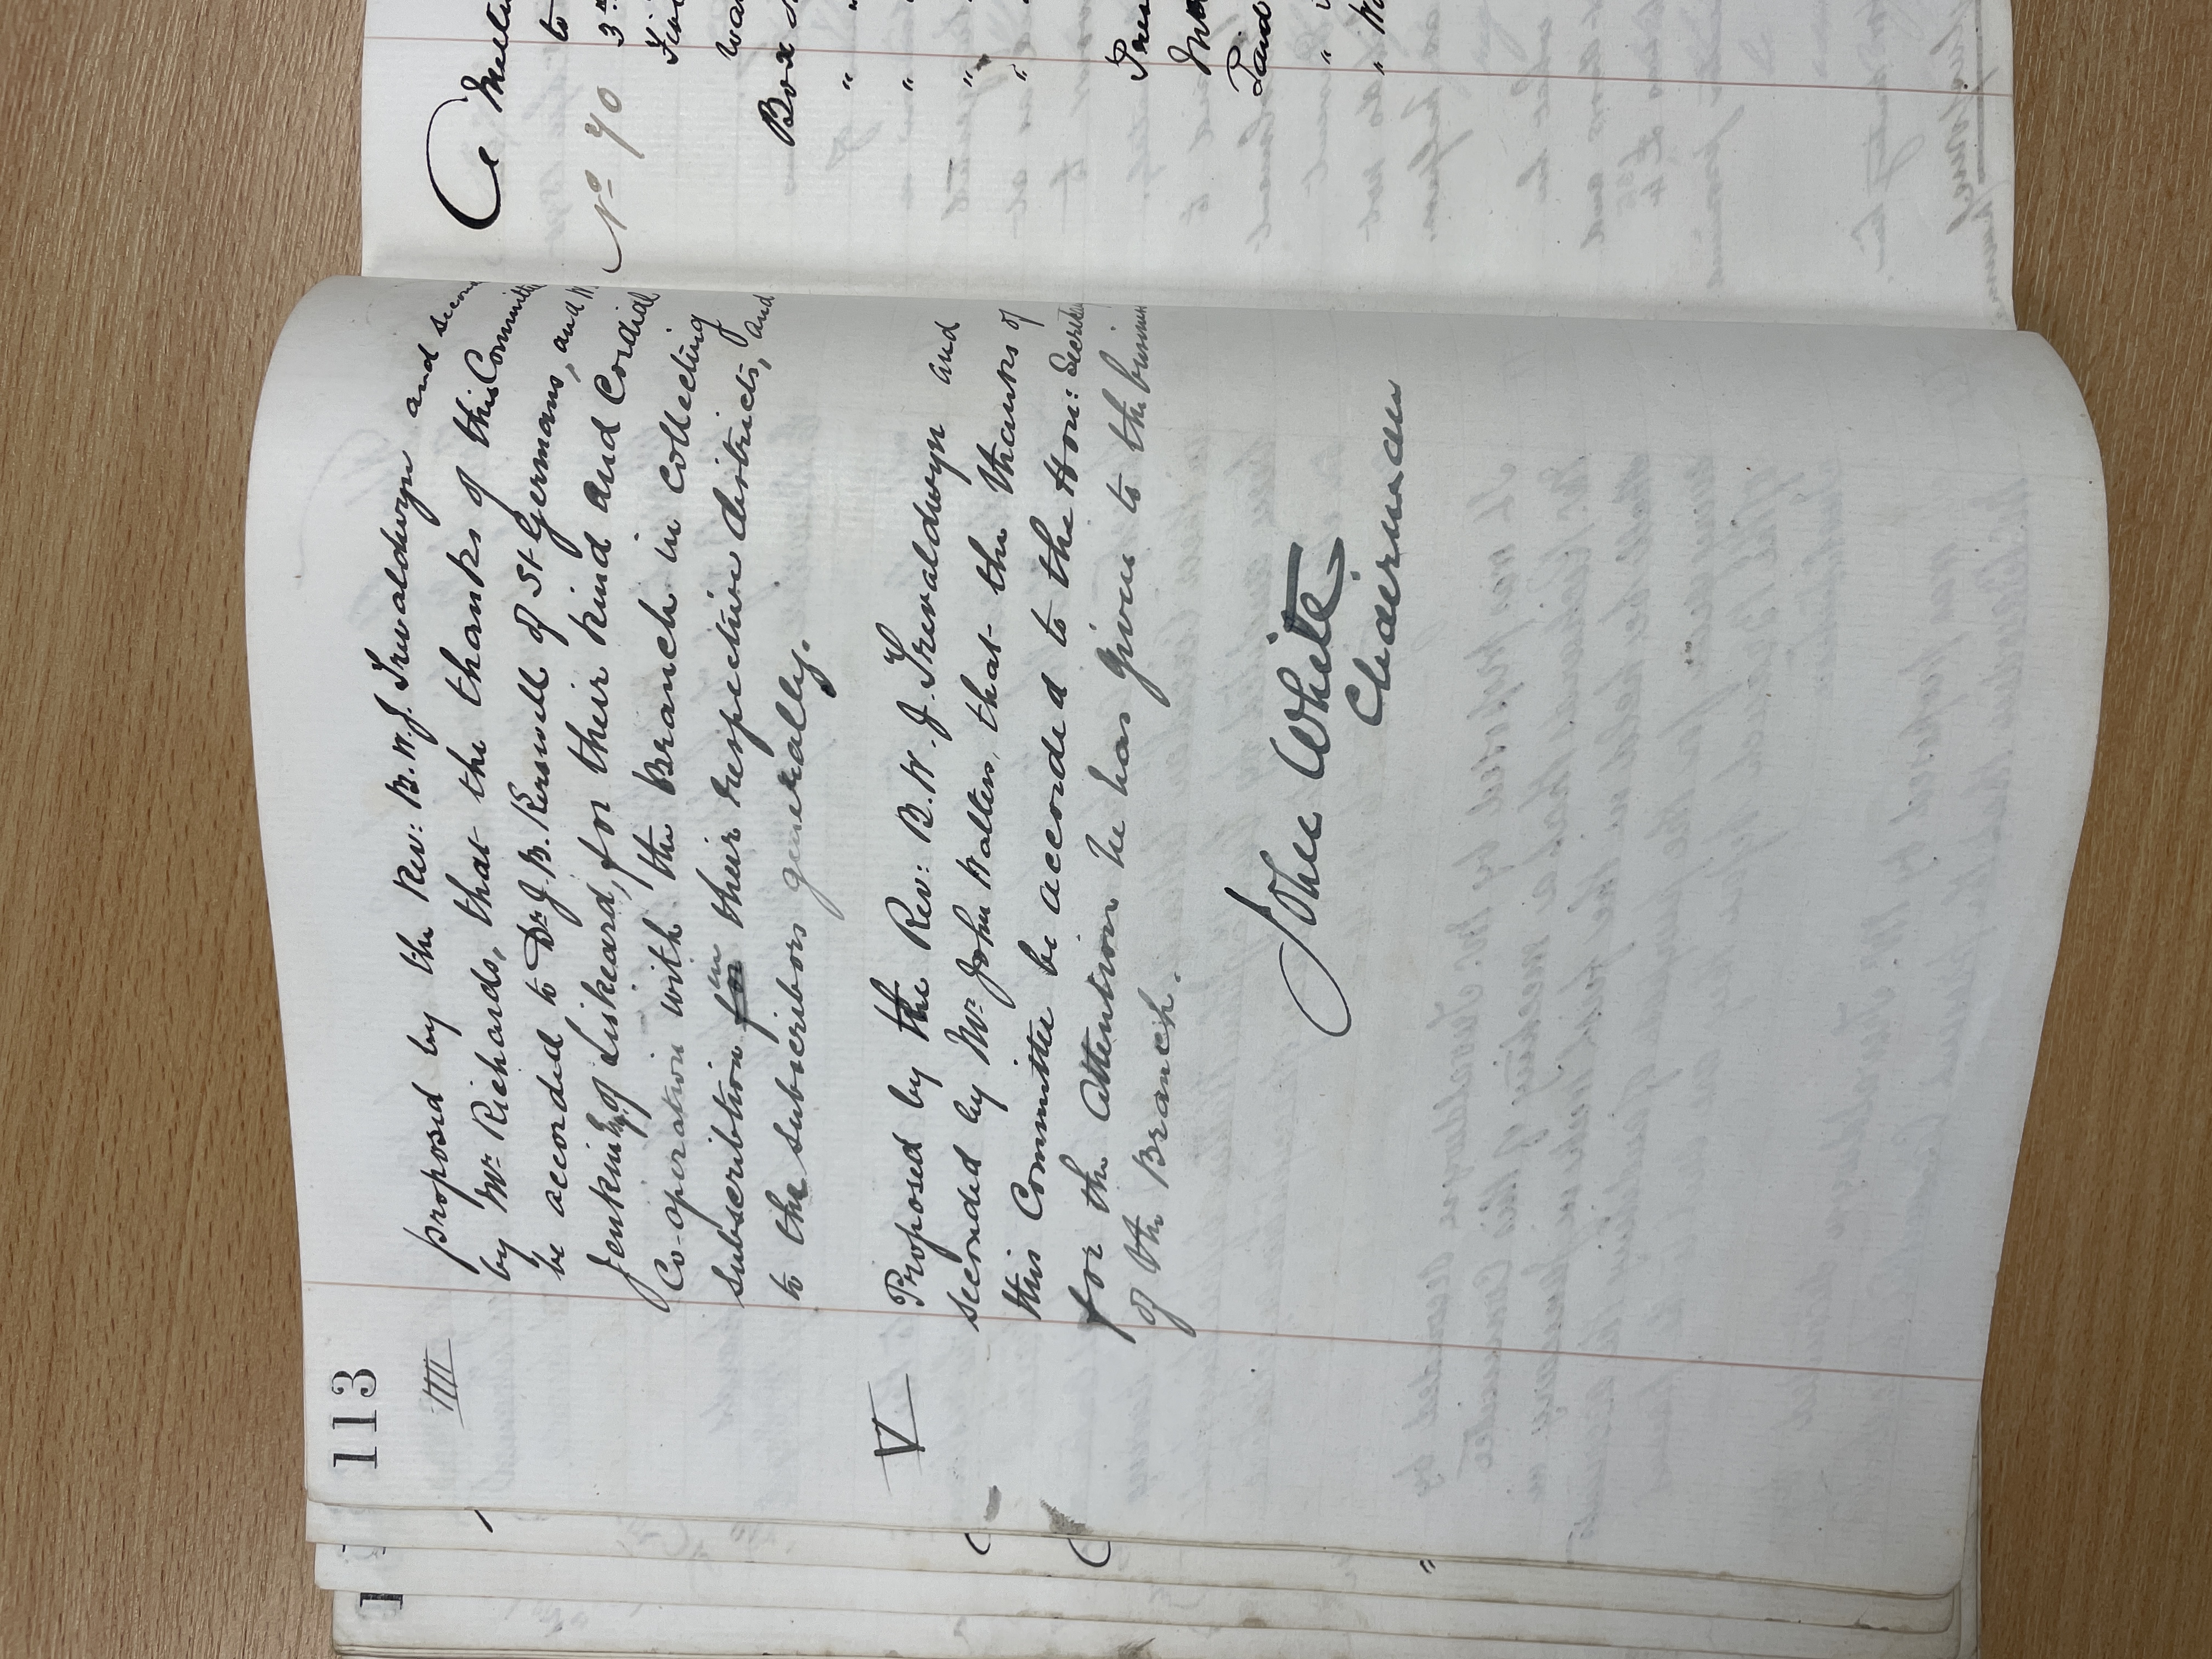 113
IIII
proposed by the Rev: B. W. J. Trevaldwyn and
by Mr. Richards, that the thanks of this Committ
be accorded to Dr. J. B. Kerswill of St Germans, and
Jenkin of Liskeard, for their kind and Cordial
Co-operation with the Branch in collecting
Subscribtion for in their respective districts, and
to the Subscribors generally.
V
Proposed by the Rev: B. W. J. Trevaldwyn and
seconded by Mr. John Walters, that the thanks of
this Committee be accorded to the Hon: Secret
for the attention he has given to the busin
of the Branch.
John White
Chairman
A Meet
No 90
to
3
wa
Box
Pres
Paid